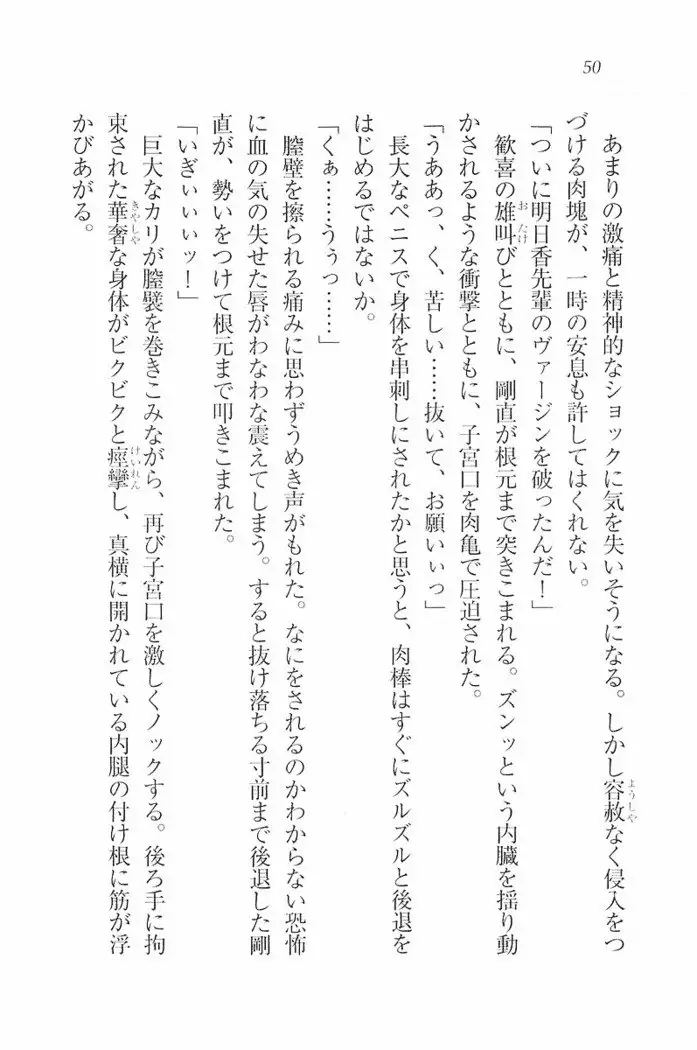 50
あまりの激痛と精神的なショックに気を失いそうになる。しかし容赦なく侵入をつ
づける肉塊が、一時の安息も許してはくれない。
「ついに明日香先輩のヴァージンを破ったんだ!」
歓喜の雄叫びとともに、剛直が根元まで突きこまれる。ズンッという内臓を揺り動
かされるような衝撃とともに、子宮口を肉亀で圧迫された。
「うああっ、く、苦しい……抜いて、お願いぃっ」
長大なペニスで身体を串刺しにされたかと思うと、肉棒はすぐにズルズルと後退を
はじめるではないか。
「くぁ……うぅっ……」
膣壁を擦られる痛みに思わずうめき声がもれた。なにをされるのかわからない恐怖
に血の気の失せた唇がわなわな震えてしまう。すると抜け落ちる寸前まで後退した剛
直が、勢いをつけて根元まで叩きこまれた。
「いぎぃぃぃッ!」
巨大なカリが膣襞を巻きこみながら、再び子宮口を激しくノックする。後ろ手に拘
束された華奢な身体がビクビクと痙攣し、真横に開かれている内腿の付け根に筋が浮
かびあがる。